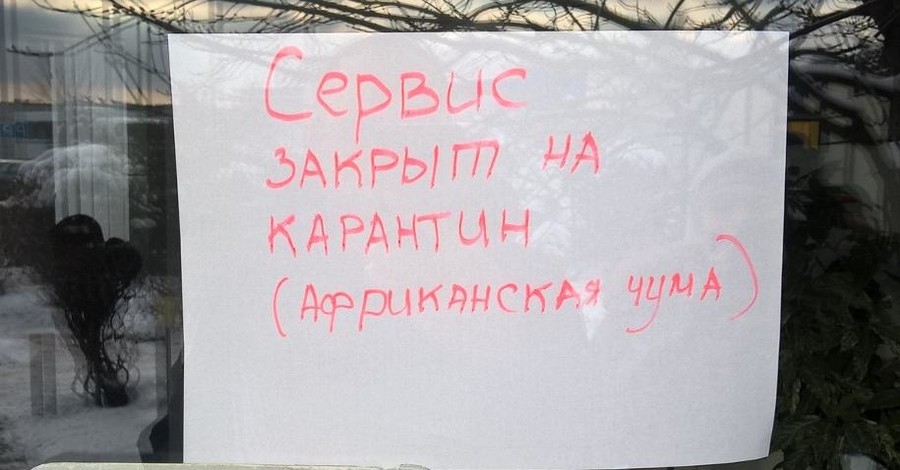 Сервис
ЗАКРЫТ НА
КАРАНТИН
(АФРИКАНСКАЯ ЧУМА)